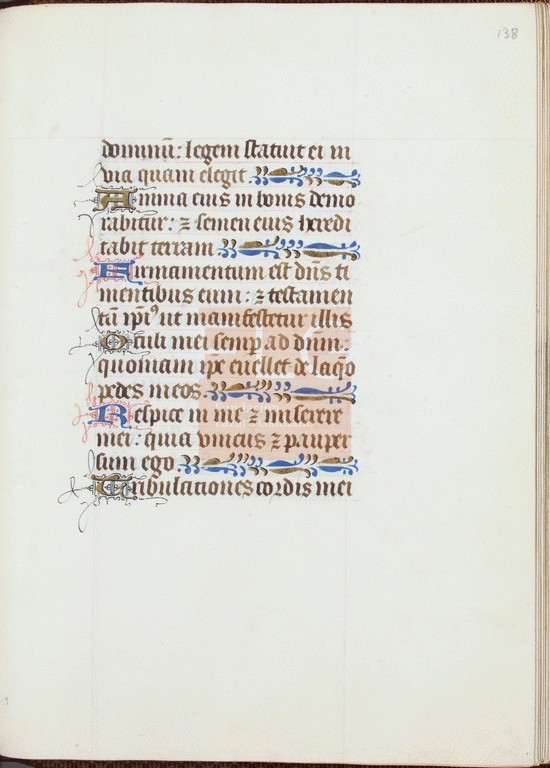 138
dominū: legem statuit ei in
via quam elegit
Anima eius in bonis demo
rabitur: ⁊ semen eius heredi
tabit terram
Firmamentum est dn̄s ti
mentibus eum: ⁊ testamen
tū ip̄iꝰ ut manifestetur illis
Oculi mei semp̄ ad dnm̄:
quoniam ip̄e euellet de laq̄o
pedes meos
Respice in me ⁊ miserere
mei: quia vnicus ⁊ pauper
sum ego
Tribulationes cordis mei